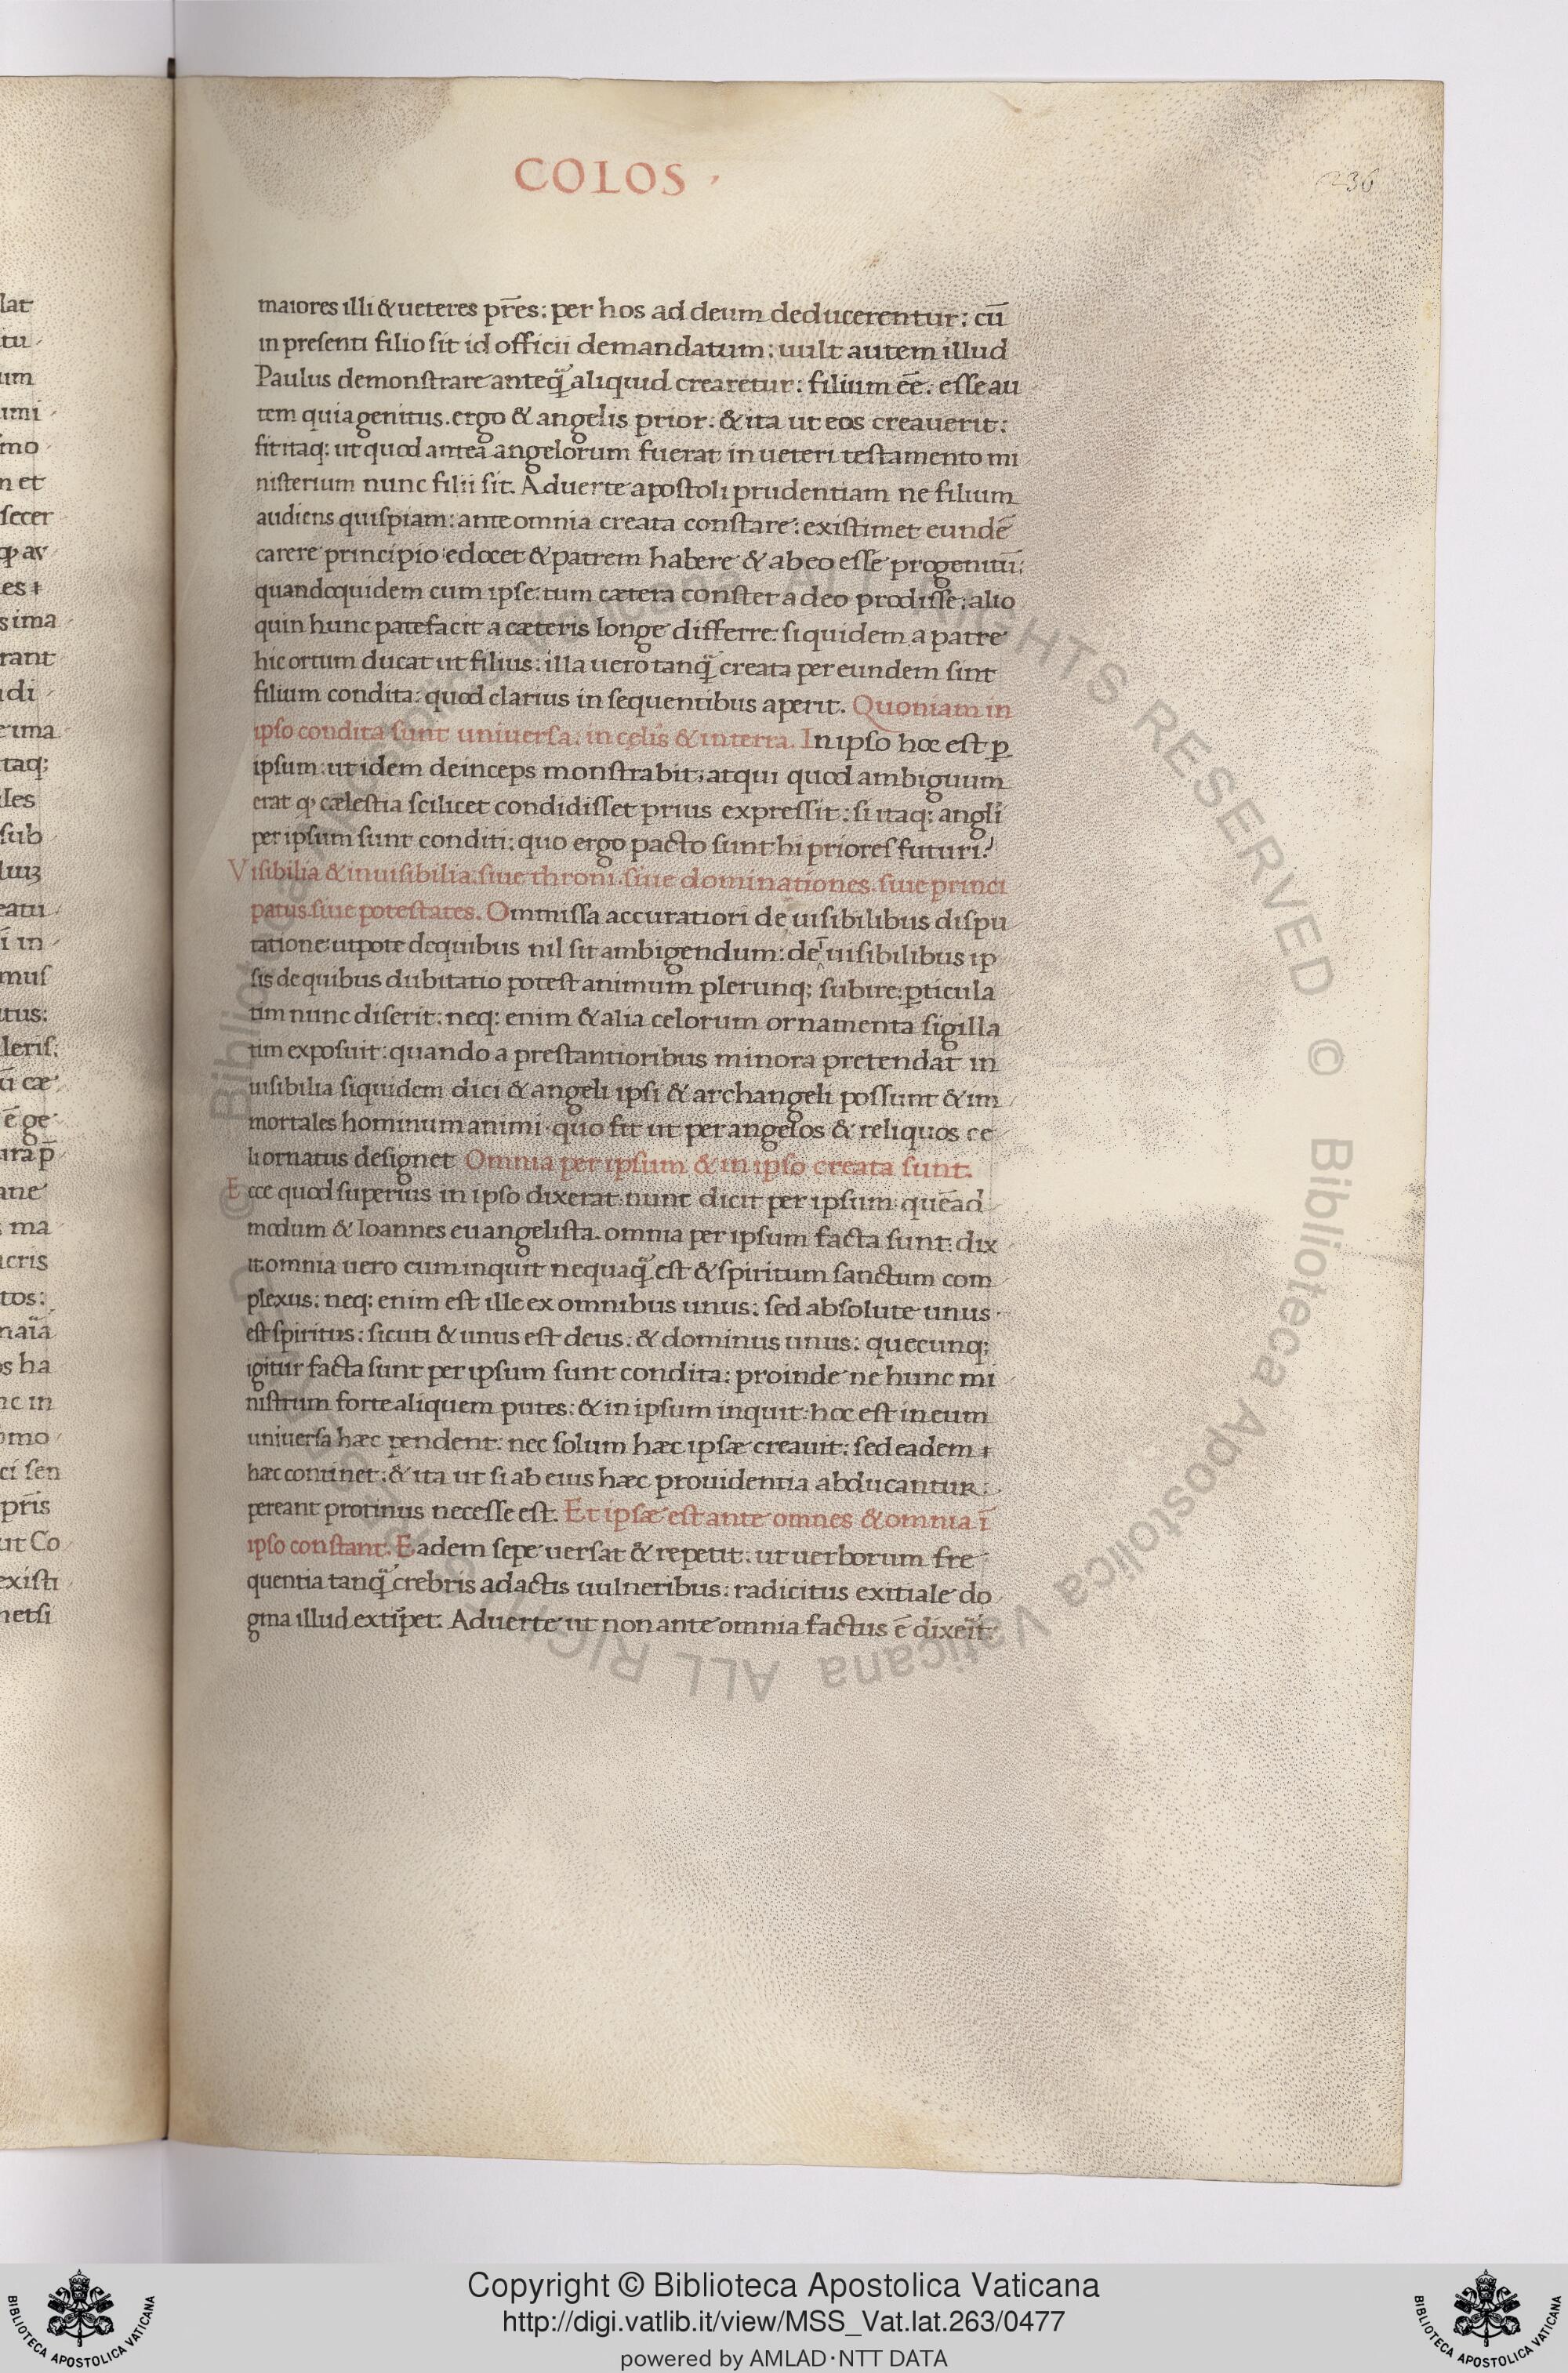 COLOS ·
236
maiores illi & ueteres pr̄es: per hos ad deum deducerentur: cū
in presenti filio sit id officii demandatum: uult autem illud
Paulus demonstrare anteq̄ aliquid crearetur: filium eē. esse au
tem quia genitus. ergo & angelis prior. & ita ut eos creauerit:
fit itaq: ut quod antea angelorum fuerat in ueteri testamento mi
nisterium nunc filii sit. Aduerte apostoli prudentiam ne filium
audiens quispiam: ante omnia creata constare: existimet eundē
carere principio edocet & patrem habere & ab eo esse progenitū:
quandoquidem cum ipse: tum cætera constet a deo prodisse: alio
quin hunc patefacit a cæteris longe differre: siquidem a patre
hic ortum ducat ut filius: illa uero tanq̄ creata per eundem sint
filium condita: quod clarius in sequentibus aperit. Quoniam in
ipso condita sunt uniuersa: in cęlis & in terra. In ipso hoc est ꝑ
ipsum: ut idem deinceps monstrabit: atqui quod ambiguum
erat ꝙ cælestia scilicet condidisset prius expressit: si itaq: angli
per ipsum sunt conditi: quo ergo pacto sunt hi priores futuri?
Visibilia & inuisibilia. siue throni. siue dominationes. siue princi
patus. siue potestates. Ommissa accuratiori de uisibilibus dispu
tatione: utpote de quibus nil sit ambigendum: de ī uisibilibus ip
sis de quibus dubitatio potest animum plerunq; subire: ꝑticula
tim nunc diserit: neq: enim & alia celorum ornamenta sigilla
tim exposuit: quando a prestantioribus minora pretendat in
uisibilia siquidem dici & angeli ipsi & archangeli possunt & im
mortales hominum animi. quo fit ut per angelos & reliquos ce
li ornatus designet Omnia per ipsum & in ipso creata sunt.
Ecce quod superius in ipso dixerat. nunc dicit per ipsum. quēad
modum & Ioannes euangelista. omnia per ipsum facta sunt: dix
it omnia uero cum inquit nequaq̄ est & spiritum sanctum com
plexus: neq: enim est ille ex omnibus unus: sed absolute unus
est spiritus: sicuti & unus est deus: & dominus unus: quecunq;
igitur facta sunt per ipsum sunt condita: proinde ne hunc mi
nistrum forte aliquem putes: & in ipsum inquit: hoc est in eum
uniuersa hæc pendent: nec solum hæc ipsæ creauit: sed eadem
hæc continet: & ita ut si ab eius hæc prouidentia abducantur:
pereant protinus necesse est. Et ipsæ est ante omnes & omnia ī
ipso constant. Eadem sepe uersat & repetit: ut uerborum fre
quentia tanq̄ crebris adactis uulneribus: radicitus exitiale do
gma illud extirpet. Aduerte ut non ante omnia factus ē dixerit:
lat
um
mo
n et
secer
rant
taq;
sub
i in
mus
tus:
tos:
ut Co
existi
Copyright © Biblioteca Apostolica Vaticana
http://digi.vatlib.it/view/MSS_Vat.lat.263/0477
powered by AMLAD·NTT DATA
BIBLIOTECA APOSTOLICA VATICANA
BIBLIOTECA APOSTOLICA VATICANA
© Biblioteca Apostolica Vaticana ALL RIGHTS RESERVED